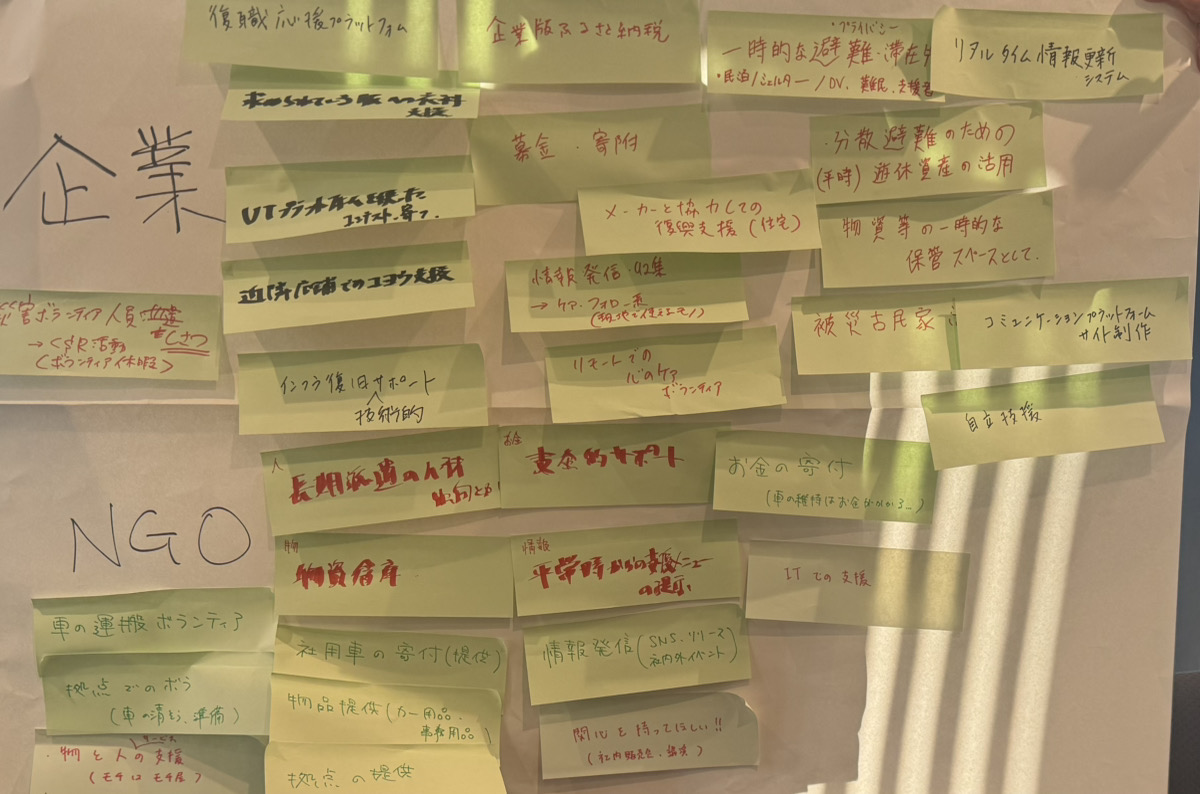 復職応援プラットフォーム
企業版ふるさと納税
・プライバシー
一時的な避難・滞在
・民泊/シェルター/DV、難民、支援者
リアルタイム情報更新
システム
企業
支援
募金・寄附
・分散避難のための
(平時)遊休資産の活用
メーカーと協力しての
復興支援(住宅)
物資等の一時的な
保管スペースとして.
近隣店舗でのコヨウ支援
情報発信・収集
→ケア・フォロー系
災害ボランティア人員
→CSR活動
(ボランティア休暇)
被災古民家
コミュニケーションプラットフォーム
サイト制作
インフラ復旧サポート
技術的
リモートでの
心のケア
ボランティア
自立支援
人
長期派遣の人材
出向とか
お金
資金的サポート
お金の寄付
(車の維持はお金がかかる…)
NGO
物
物資倉庫
情報
平常時からの支援メニュー
の提示
ITでの支援
車の運搬ボランティア
社用車の寄付(提供)
情報発信(SNS、リリース
社内外イベント)
拠点でのボラ
(車の清掃、準備)
物品提供(カー用品・
事務用品)
関心を持ってほしい!!
サービス
・物と人の支援
(モチはモチ屋)
拠点の提供